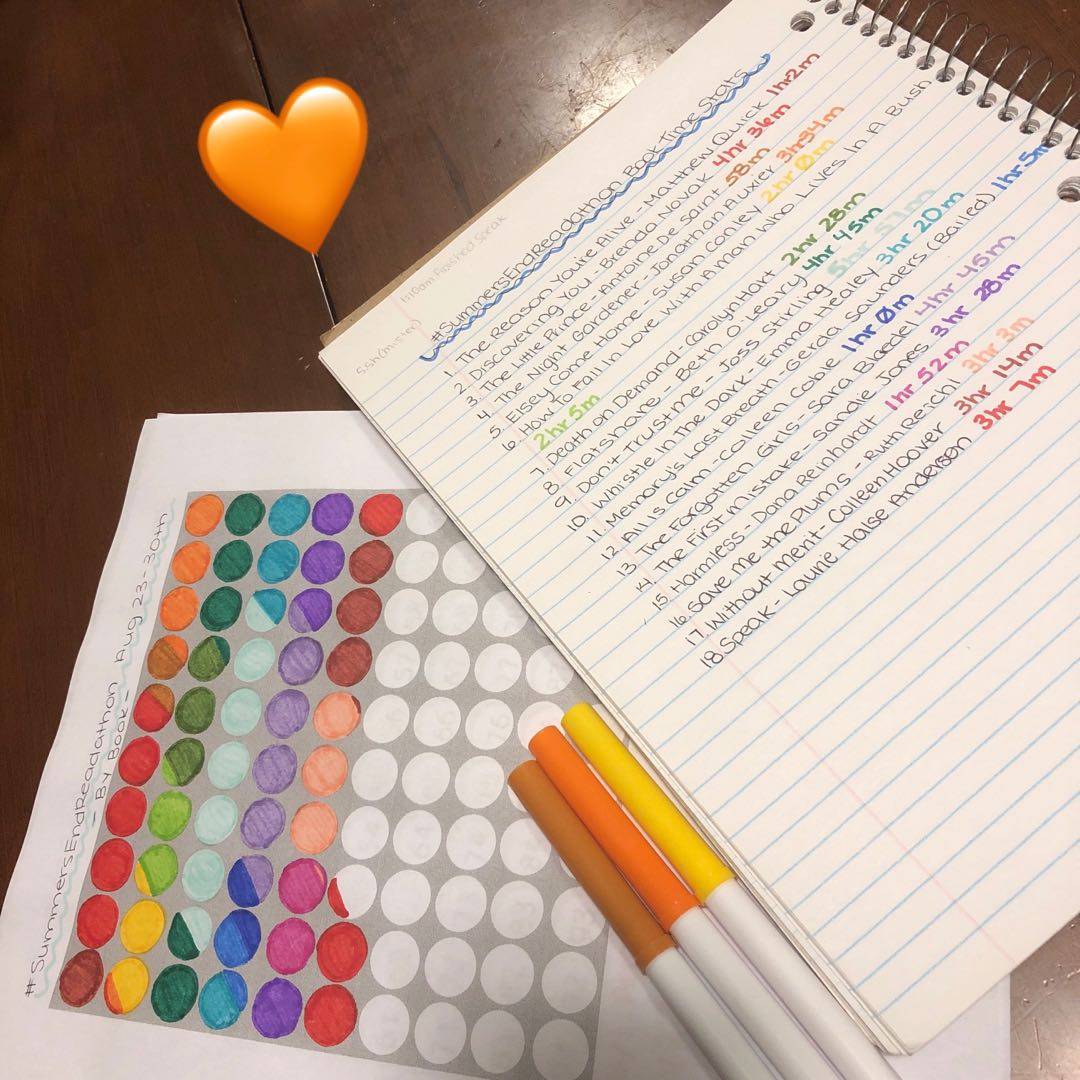 1:10am Finished Speak
#SummersEndReadathon Book Time Stats
1. The Reason You're Alive - Matthew Quick 1hr2m
2. Discovering You - Brenda Novak 4hr 36m
3. The Little Prince - Antoine De Saint 58m
4. The Night Gardener - Jonathan Auxier 3hr54m
5. Elsey Come Home - Susan Conley 2hr 0m
6. How To Fall In Love With A Man Who Lives In A Bush
2hr 5m
7. Death on Demand - Carolyn Hart 2hr 28m
8. Flatshare - Beth O. Leary 4hr 45m
9. Don't Trust me - Joss Stirling 5hr 57m
10. Whistle In The Dark - Emma Healey 3hr 20m
11. Memory's Last Breath - Gerda Saunders (Bailed) 1hr 5m
12. All is Calm - Colleen Coble 1hr 0m
13. The Forgotten Girls - Sara Blaedel 4hr 45m
14. The First Mistake - Sandie Jones 3hr 28m
15. Harmless - Dana Reinhardt 1hr 52m
16. Save me the Plums - Ruth Reichl 3hr 3m
17. Without merit - Colleen Hoover 3hr 14m
18. Speak - Laurie Halse Anderson 3hr 7m
#SummersEndReadathon Aug 23-30th
- By Book -